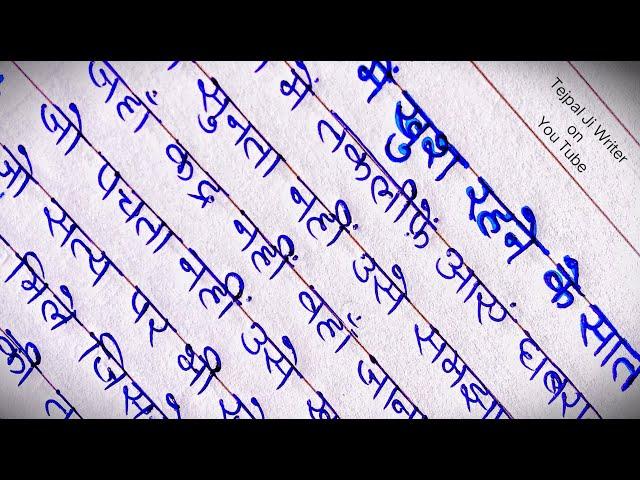 में खुश रहने के सात
में तकलीफ़ें आएं घबरा
सुनता नहीं उसे समझा
जहाँ कद्र नहीं वहाँ जान
जो पचता नहीं उसे
जो सत्य पर भी
मिले जिस
की
Tejpal Ji Writer
on
You Tube